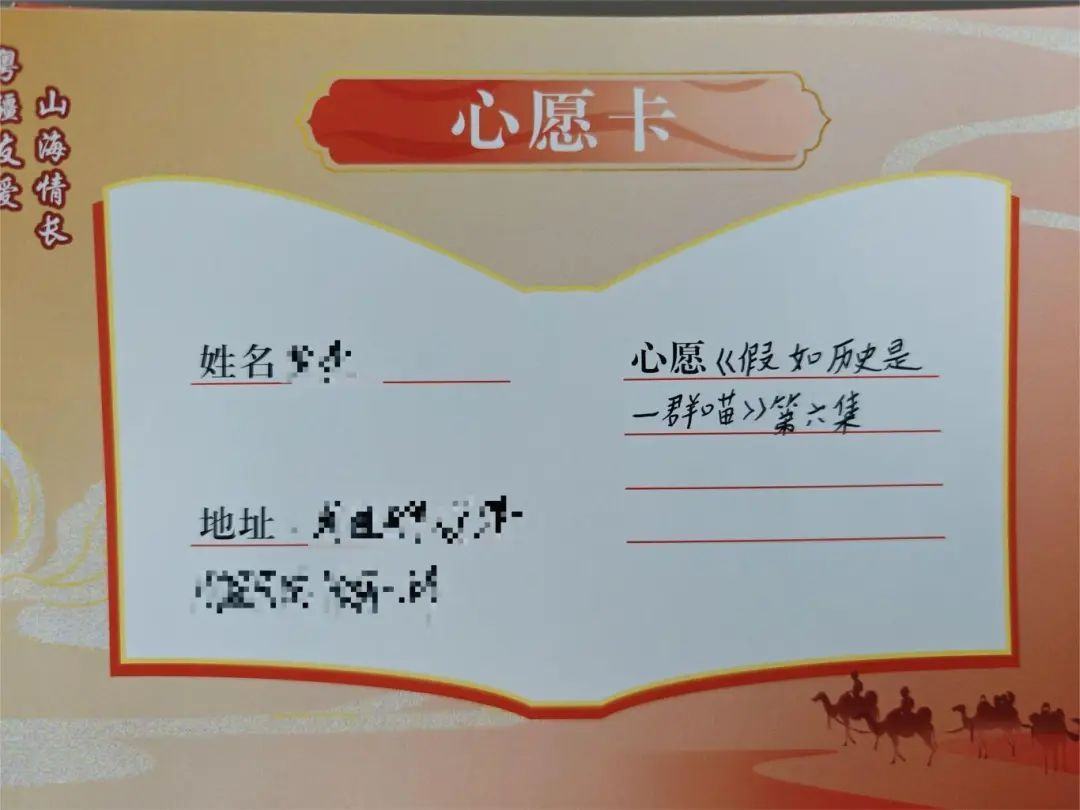 粤疆友爱
山海情长
心愿卡
姓名
心愿《假如历史是
一群喵》第六集
地址